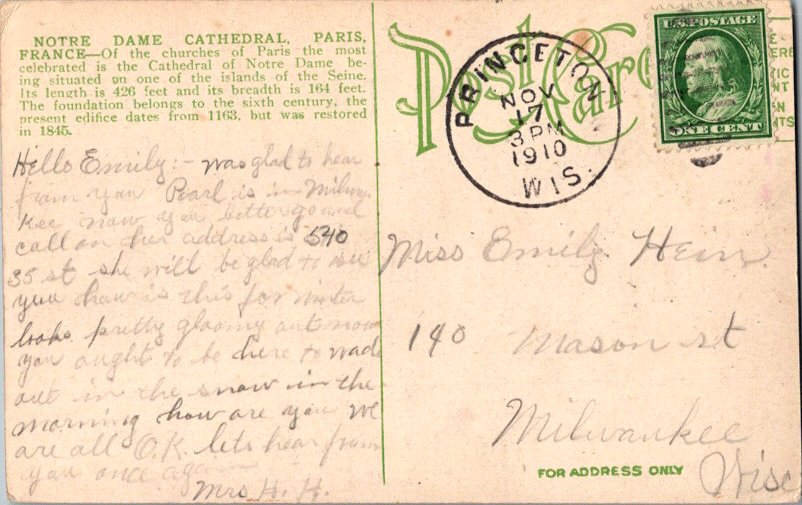 NOTRE DAME CATHEDRAL, PARIS,
FRANCE—Of the churches of Paris the most
celebrated is the Cathedral of Notre Dame be-
ing situated on one of the islands of the Seine.
Its length is 426 feet and its breadth is 164 feet.
The foundation belongs to the sixth century, the
present edifice dates from 1163, but was restored
in 1845.
Hello Emily:- was glad to hear
from you Pearl is in Milwau
kee now you better go and
call on her address is 540
35 st she will be glad to see
you how is this for winter
looks pretty gloomy out now
you ought to be here to wade
out in the snow in the
morning how are you we
are all O.K. lets hear from
you once again
Mrs H. H.
Post Card
PRINCETON
NOV
17
3 PM
1910
WIS.
U.S. POSTAGE
ONE CENT
Miss Emily Hein.
140 Mason st
Milwaukee
Wisc
FOR ADDRESS ONLY